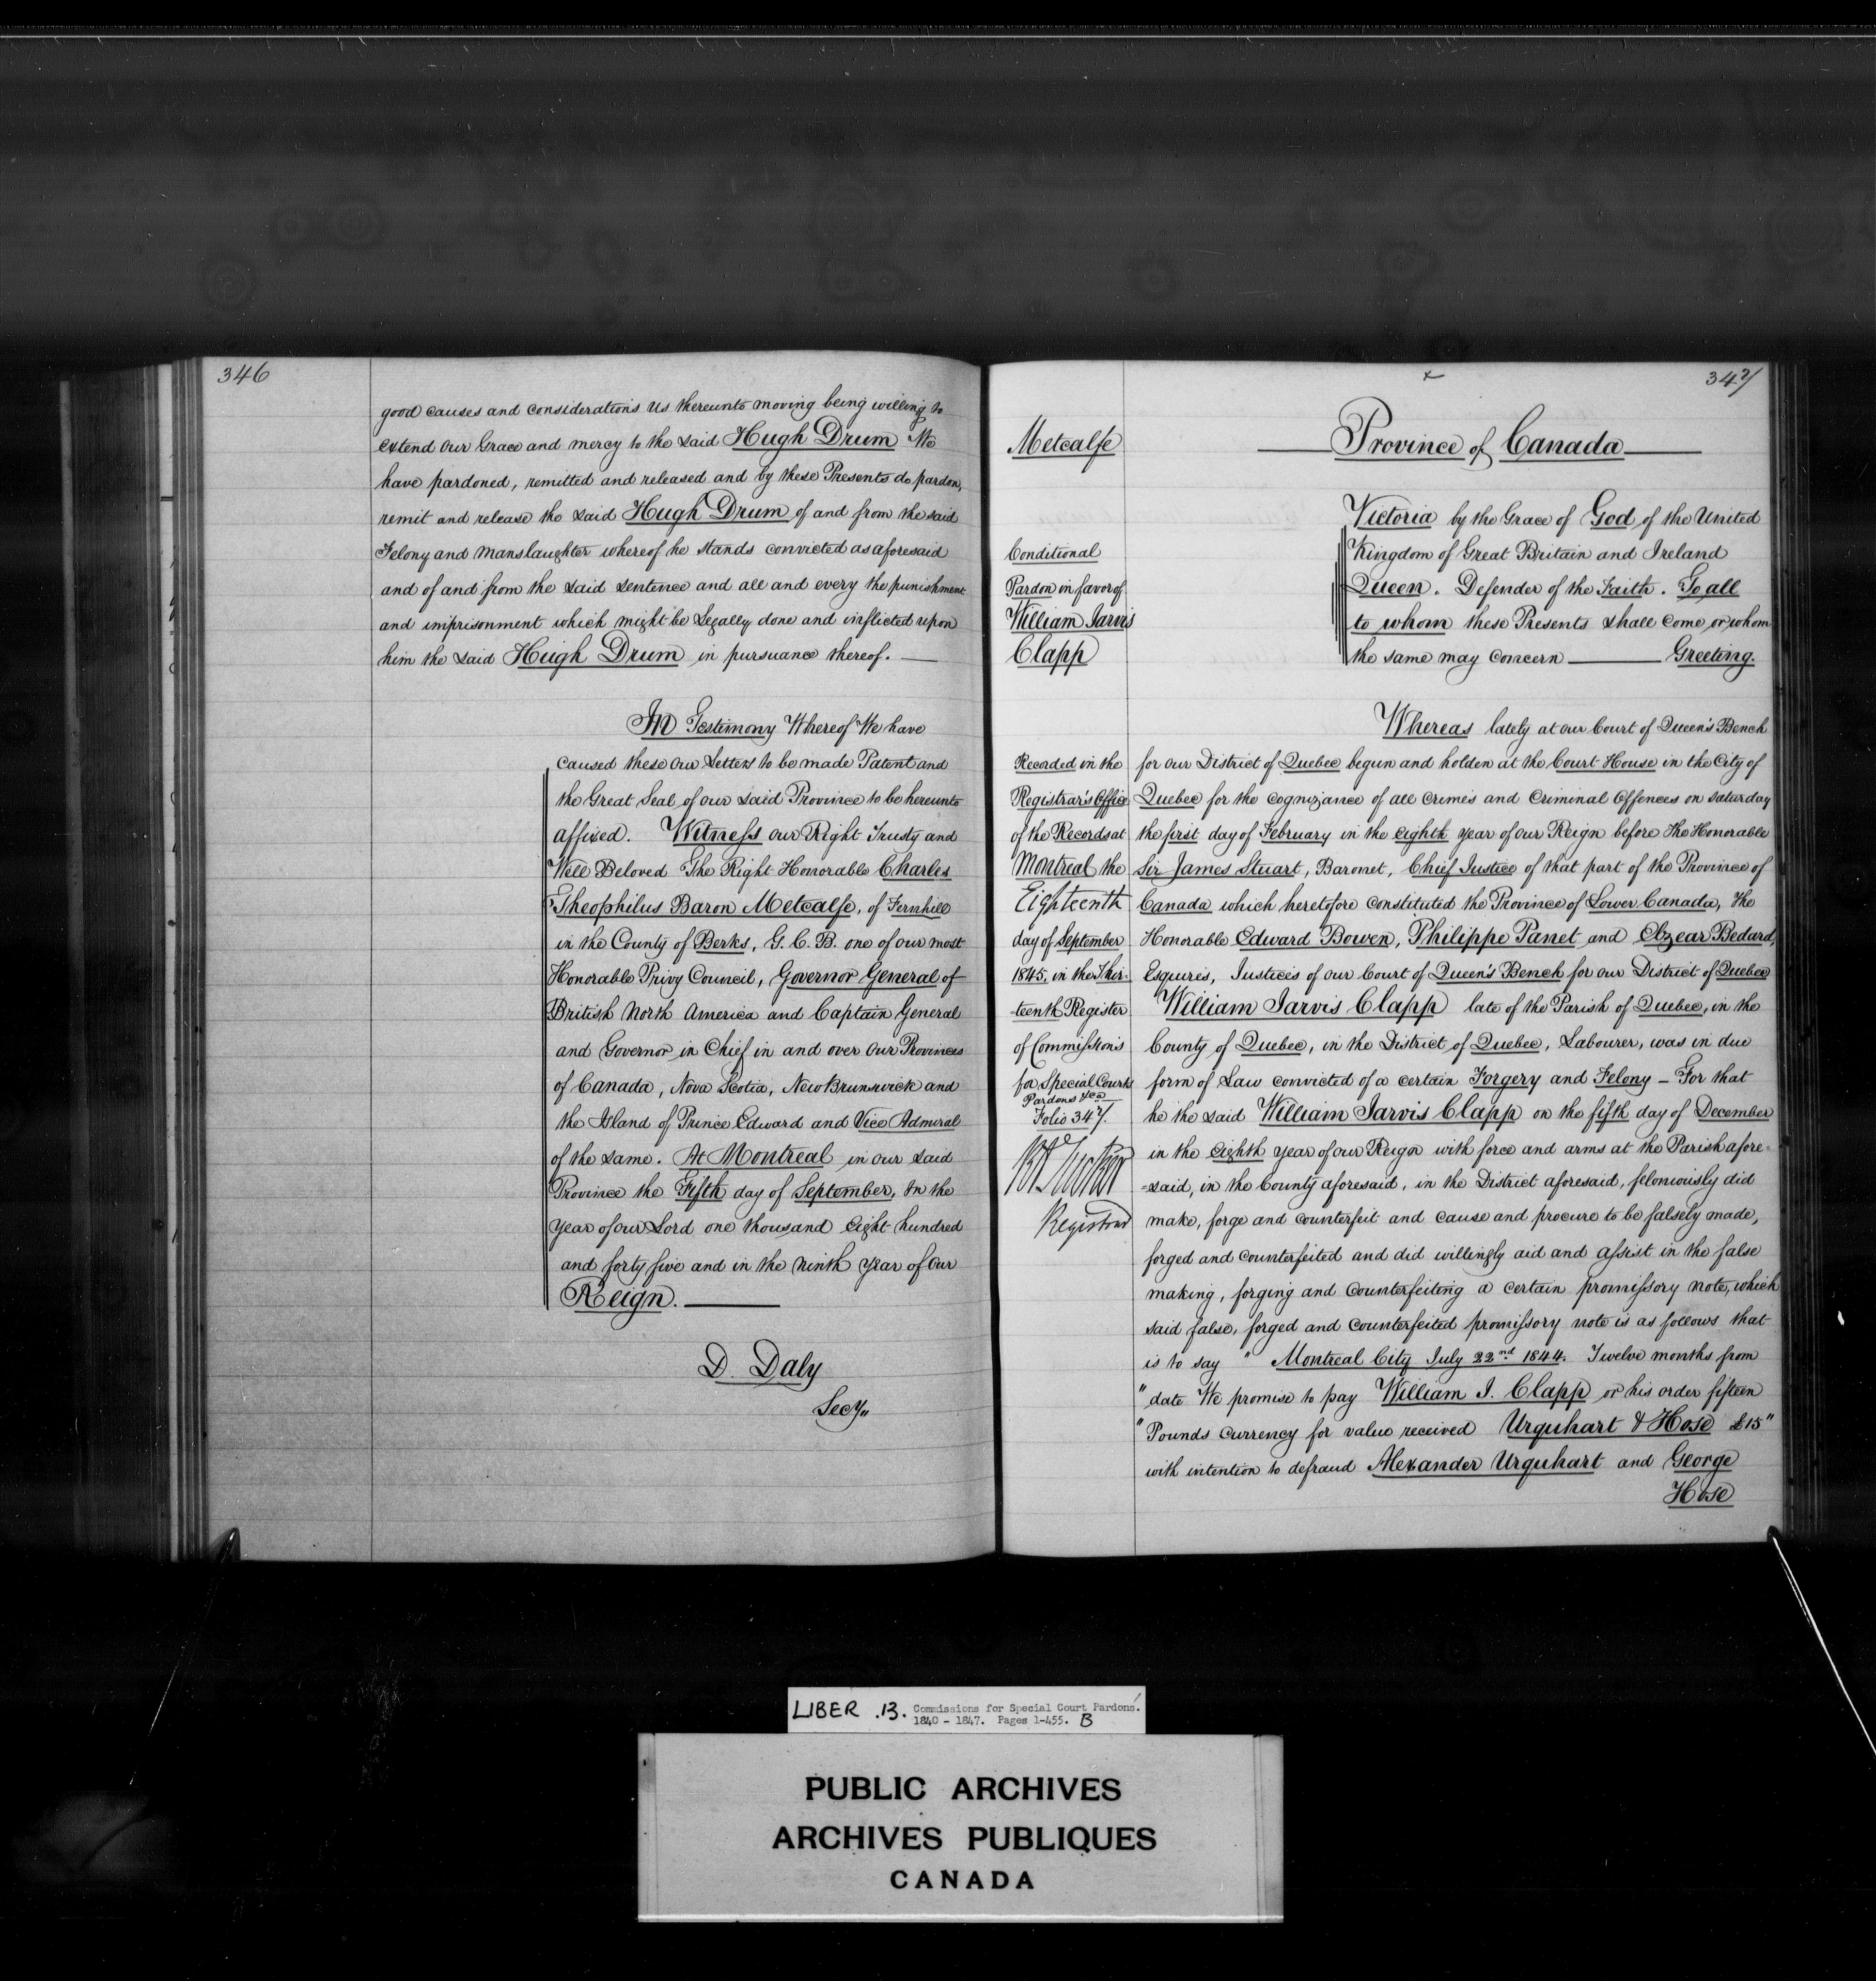 346
good causes and considerations us thereunto moving being willing to
extend our Grace and mercy to the said Hugh Drum We
have pardoned, remitted and released and by these Presents do pardon,
remit and release the said Hugh Drum of and from the said
Felony and Manslaughter whereof he stands convicted as aforesaid
and of and from the said sentence and all and every the punishment
and imprisonment which might be Legally done and inflicted upon
him the said Hugh Drum in pursuance thereof.
In Testimony Whereof We have
caused these our Letters to be made Patent and
the Great Seal of our said Province to be hereunto
affixed. Witness our Right Trusty and
Well Beloved The Right Honorable Charles
Theophilus Baron Metcalfe, of Fernhill
in the County of Berks, G.C.B. one of our most
Honorable Privy Council, Governor General of
British North America and Captain General
and Governor in Chief in and over our Provinces
of Canada, Nova Scotia, New Brunswick and
the Island of Prince Edward and Vice Admiral
of the same. At Montreal in our said
Province the Fifth day of September, In the
year of our Lord one thousand Eight hundred
and forty five and in the ninth year of Our
Reign.
D. Daly
Secy"
347
Metcalfe
Conditional
Pardon in favor of
William Jarvis
Clapp
Recorded in the
Registrar's Office
of the Records at
Montreal the
Eighteenth
day of September
1845, in the Thir-
-teenth Register
of Commissions
for Special Courts
Pardons &ca
Folio 347.
Registrar
Province of Canada
Victoria by the Grace of God of the United
Kingdom of Great Britain and Ireland
Queen. Defender of the Faith. To all
to whom these Presents shall come or whom
the same may concern Greeting.
Whereas lately at our Court of Queen's Bench
for our District of Quebec begun and holden at the Court House in the City of
Quebec for the cognizance of all Crimes and Criminal Offences on Saturday
the first day of February in the eighth year of our Reign before The Honorable
Sir James Stuart, Baronet, Chief Justice of that part of the Province of
Canada which heretofore constituted the Province of Lower Canada, the
Honorable Edward Bowen, Philippe Panet and Elzear Bedard,
Esquires, Justices of our Court of Queen's Bench for our District of Quebec
William Jarvis Clapp late of the Parish of Quebec, in the
County of Quebec, in the District of Quebec, Labourer, was in due
form of Law convicted of a certain Forgery and Felony - For that
he the said William Jarvis Clapp on the fifth day of December
in the Eighth year of our Reign with force and arms at the Parish afore=
=said, in the County aforesaid, in the District aforesaid, feloniously did
make, forge and counterfeit and cause and procure to be falsely made,
forged and counterfeited and did willingly aid and assist in the false
making, forging and counterfeiting a certain promissory note, which
said false, forged and counterfeited promissory note is as follows that
is to say " Montreal City July 22nd 1844. Twelve months from
" date We promise to pay William J. Clapp or his order fifteen
" Pounds Currency for value received Urquhart & Hose £15"
with intention to defraud Alexander Urquhart and George
Hose
LIBER .13. Commissions for Special Court Pardons.
1840 - 1847. Pages 1-455. B
PUBLIC ARCHIVES
ARCHIVES PUBLIQUES
CANADA